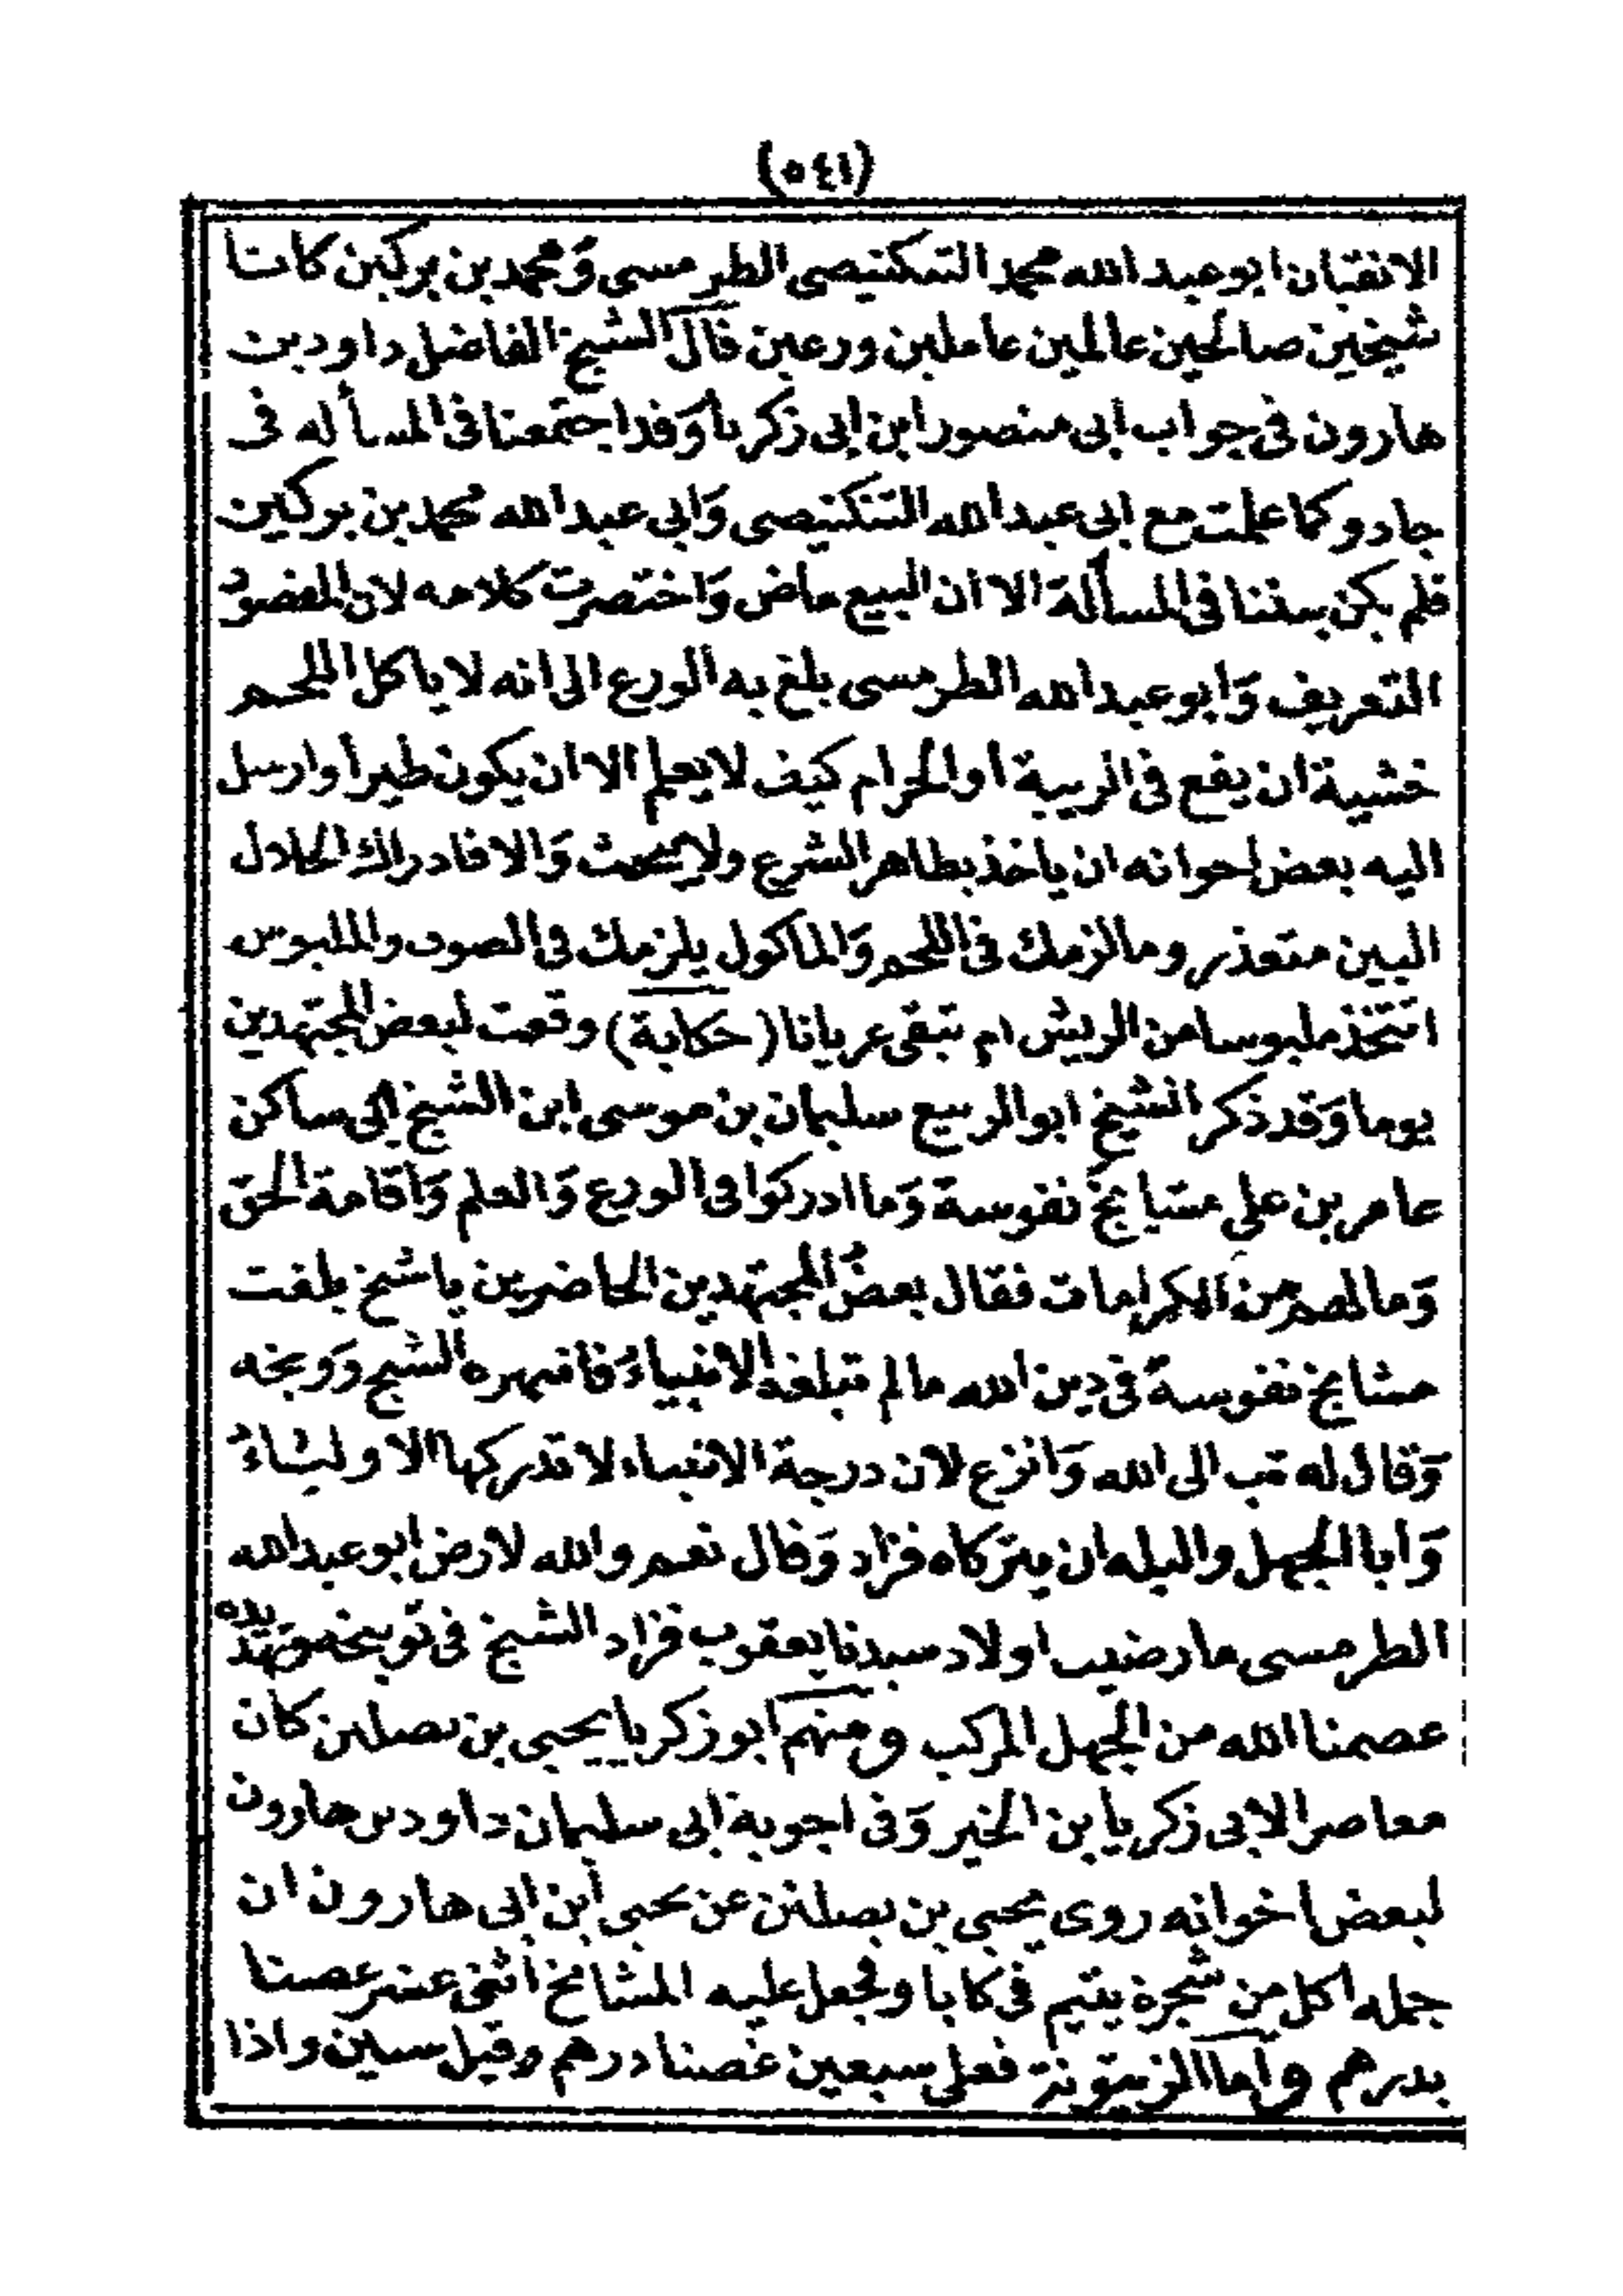 (٥٤١)
الاتقيان ابو عبد الله محمد التمكنيصى الطرمسى وَمحمد بن بركين كانا
شيخين صالحين عالمين عاملين ورعين قال الشيخ الفاضل داود بن
هارون فى جواب ابى منصور ابن ابى زكريا وَقد اجتمعنا فى المسأله فى
جادو كما علمت مع ابى عبد الله التنكنيصى وَابى عبد الله محمد بن بركين
فلم يكن بيننا فى المسألة الا ان البيع ماض وَاختصرت كلامه لان المقصود
التعريف وَابو عبد الله الطرمسى بلغ به الورع الى انه لا ياكل اللحم
خشية ان يقع فى الريبة او الحرام كيف لا يعلم الا ان يكون طيرا وارسل
اليه بعض اخوانه ان ياخذ بظاهر الشرع ولا يبحث وَالا فادراك الحلال
البين متعذر وما لزمك فى اللحم وَالماكول يلزمك فى الصوف والملبوس
اتتخذ ملبوسا من الريش ام تبقى عريانا (حكاية) وقعت لبعض المجتهدين
يوما وَقد ذكر الشيخ ابو الربيع سليمان بن موسى ابن الشيخ ابى ساكن
عامر بن على مشايخ نفوسة وَما ادركوا فى الورع وَالعلم وَاقامة الحق
وَما لهم من الكرامات فقال بعض المجتهدين الحاضرين يا شيخ بلغت
مشايخ نفوسة فى دين الله ما لم تبلغه الانبياءُ فانتهره الشيخ وَوبخه
وَقال له تب الى الله وَانزع لان درجة الانبياء لا تدركها الاولياءُ
وَأبا الجهل والبله ان يتركاه فزاد وَقال نعم والله لارض ابو عبد الله
الطرمسى ما رضيب اولاد سيدنا يعقوب فزاد الشيخ فى توبيخه وَتهديده
عصمنا الله من الجهل المركب ومنهم ابو زكريا يحيى بن يصلتن كان
معاصر الابى زكريا بن الخير وَفى اجوبة ابى سليمان داود بن هارون
لبعض اخوانه روى يحيى بن يصلتن عن يحيى ابن ابى هارون ان
جمله اكل من شجرة يتيم فى كابا وفجعل عليه المشايخ اثنى عشر غصنا
بدرهم واما الزيتونة فعلى سبعين غصنا درهم وقيل ستين واذا